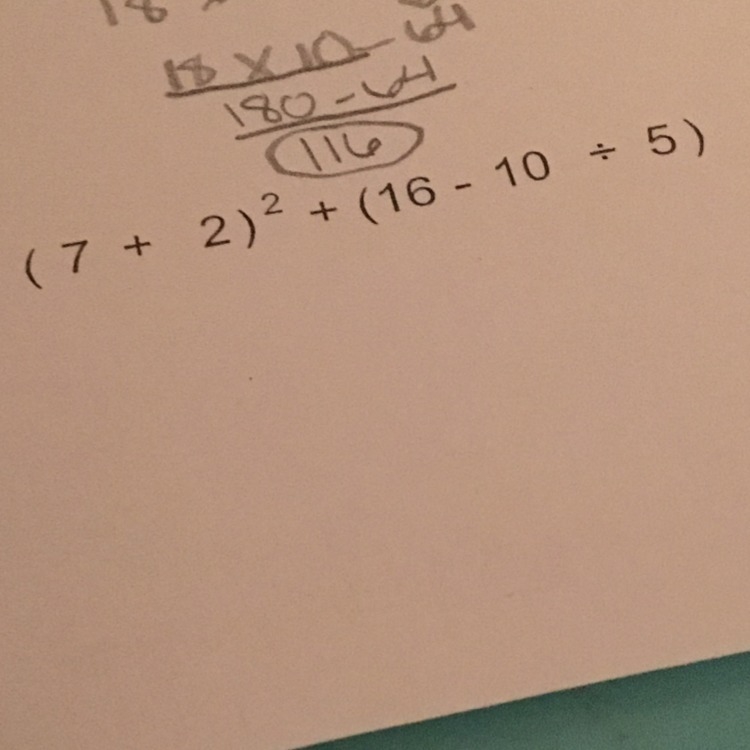 18
18 x 10 - 64
180 - 64
116
( 7 + 2)² + (16 - 10 ÷ 5)